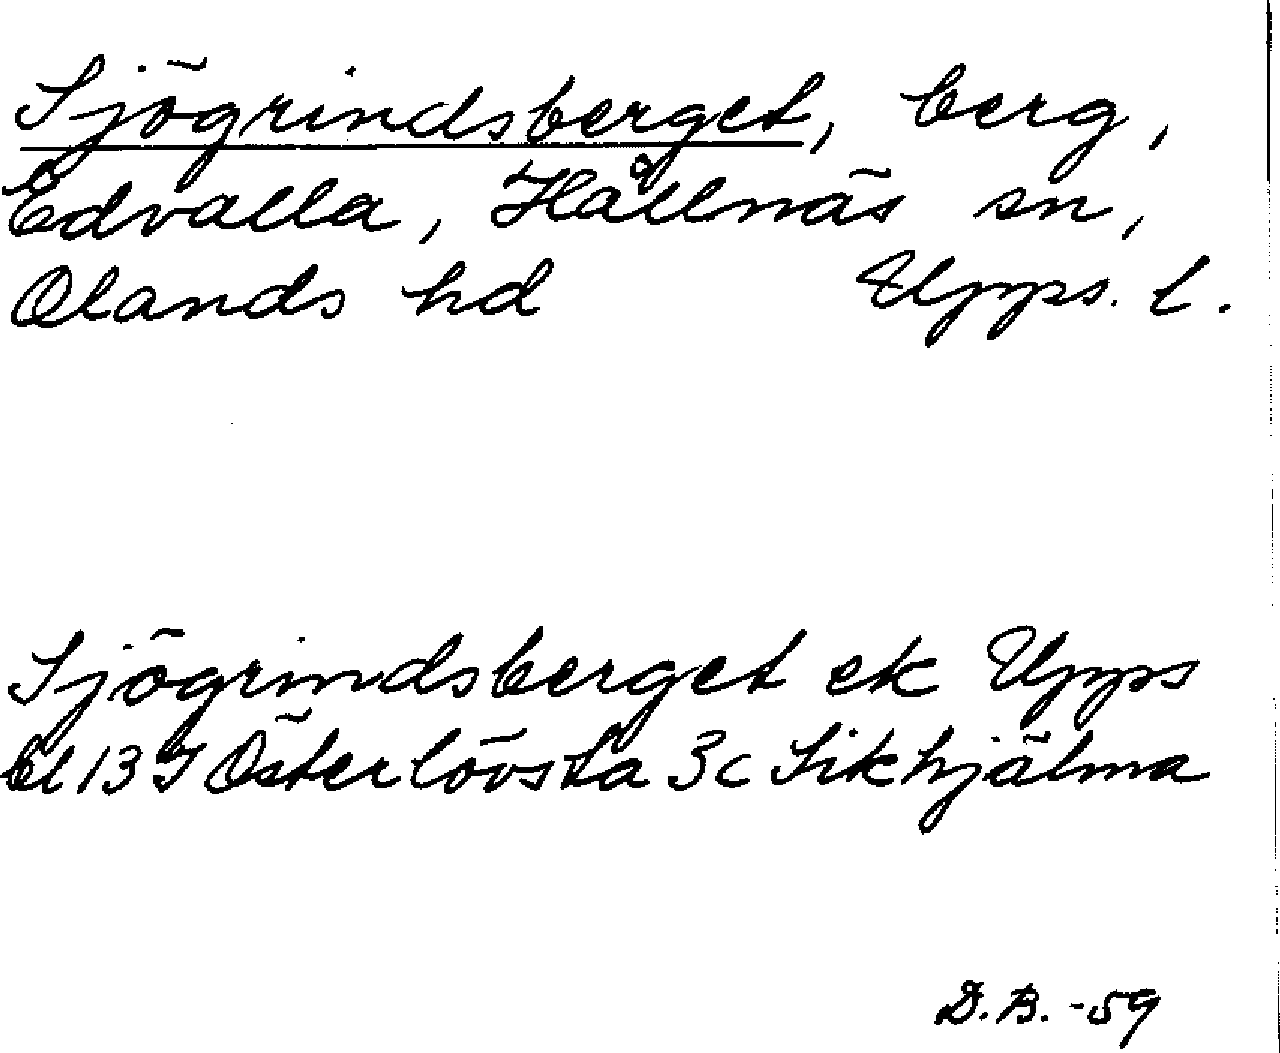 Sjögrindsberget, berg,
Edvalla, Hållnäs sn,
Olands hd Upps. l.
Sjögrindsberget ek Upps
bl 13 I Österlövsta 3c Sikhjälma
D.B. -59